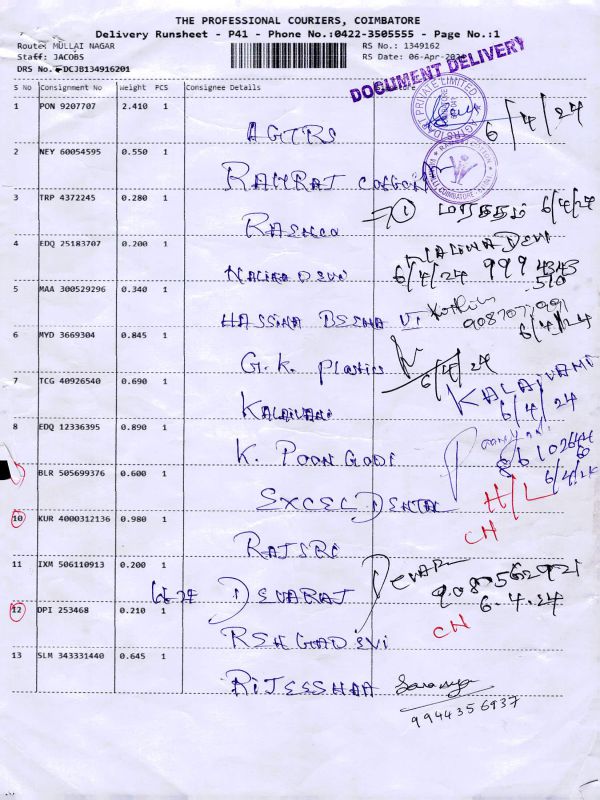 THE PROFESSIONAL COURIERS, COIMBATORE
Delivery Runsheet - P41 - Phone No.:0422-3505555 - Page No.:1
Route: MULLAI NAGAR
RS No.: 1349162
Staff: JACOBS
RS Date: 06-Apr-2024
DRS No. DCJB134916201
DOCUMENT DELIVERY
S No Consignment No Weight PCS Consignee Details
1 PON 9207707 2.410 1
AGTRS 6/4/24
2 NEY 60054595 0.550 1
RAMRAJ cotton
3 TRP 4372245 0.280 1
RASHCO 1 மரகதம் 6/4/24
4 EDQ 25183707 0.200 1
NALINA DEVI
NALINA DEVI 6/4/24 999 4343 510
5 MAA 300529296 0.340 1
HASSINA BEEMA
6/4/24
6 MYD 3669304 0.845 1
G.K. Plastic 6/4/24
7 TCG 40926540 0.690 1
KALAIVANI KALAIVANI
6/4/24
8 EDQ 12336395 0.890 1
K. POONGODI
6/4/24
BLR 505699376 0.600 1
EXCEL DENTAL H/L
10 KUR 4000312136 0.980 1
CN
RAJSRI
11 IXM 506110913 0.200 1
DEVARAJ DEVARAJ
9087562921
6.4.24
12 DPI 253468 0.210 1
CN
13 SLM 343331440 0.645 1
RITEESHAA Saranya
9944356937